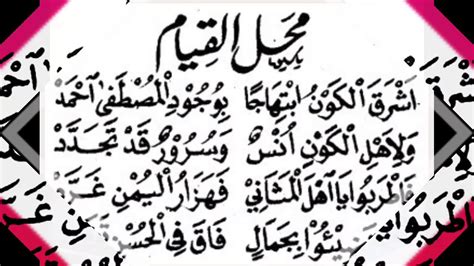 مَحَلُّ الْقِيَامِ
اَشْرَقَ الْكَوْنُ ابْتِهَاجًا بِوُجُوْدِ الْمُصْطَفٰى اَحْمَدْ
وَلِاَهْلِ الْكَوْنِ اُنْسٌ وَسُرُوْرٌ قَدْ تَجَدَّدْ
فَاطْرَبُوْا يَا اَهْلَ الْمَثَانِيْ فَهَزَارُ الْيُمْنِ غَرَّدْ
بِجَمَالٍ فَاقَ فِي الْحُسْنِ